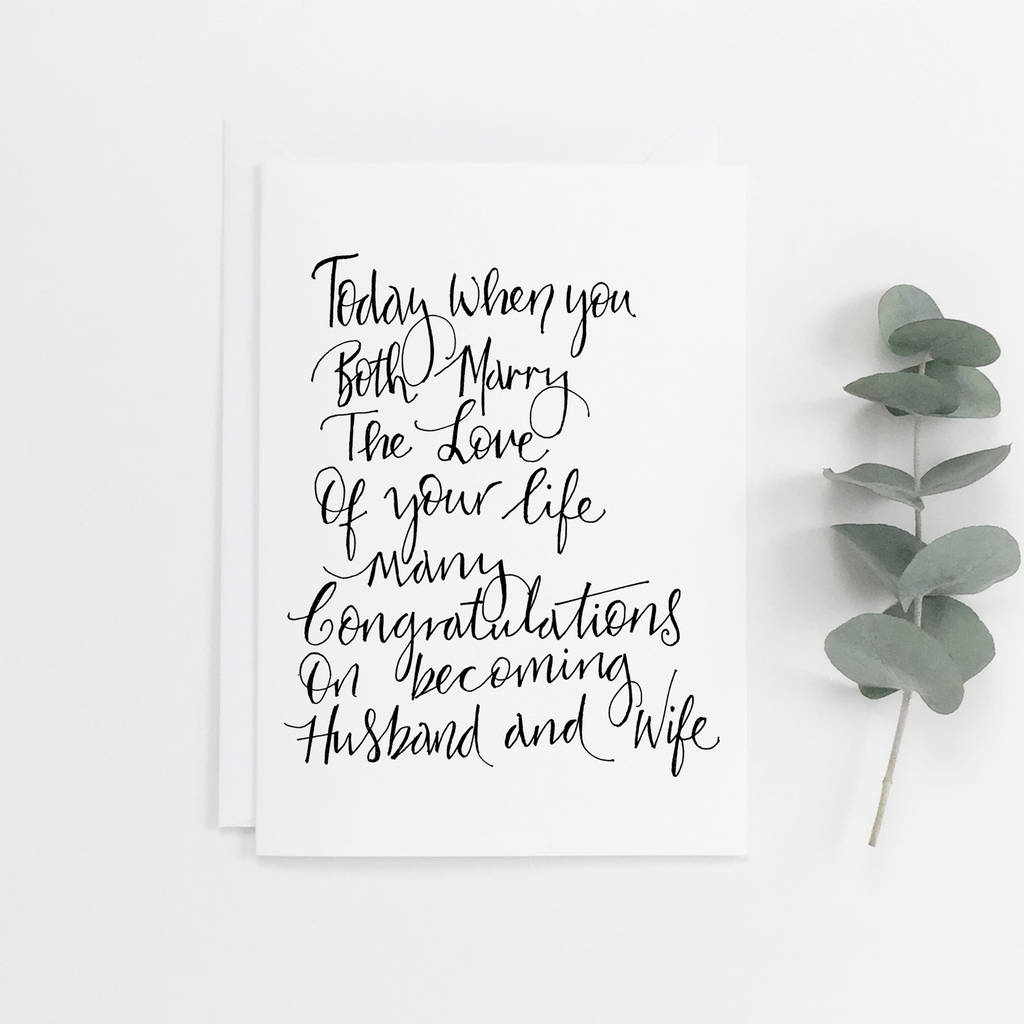 Today When you
Both Marry
The Love
Of your life
Many
Congratulations
On becoming
Husband and Wife